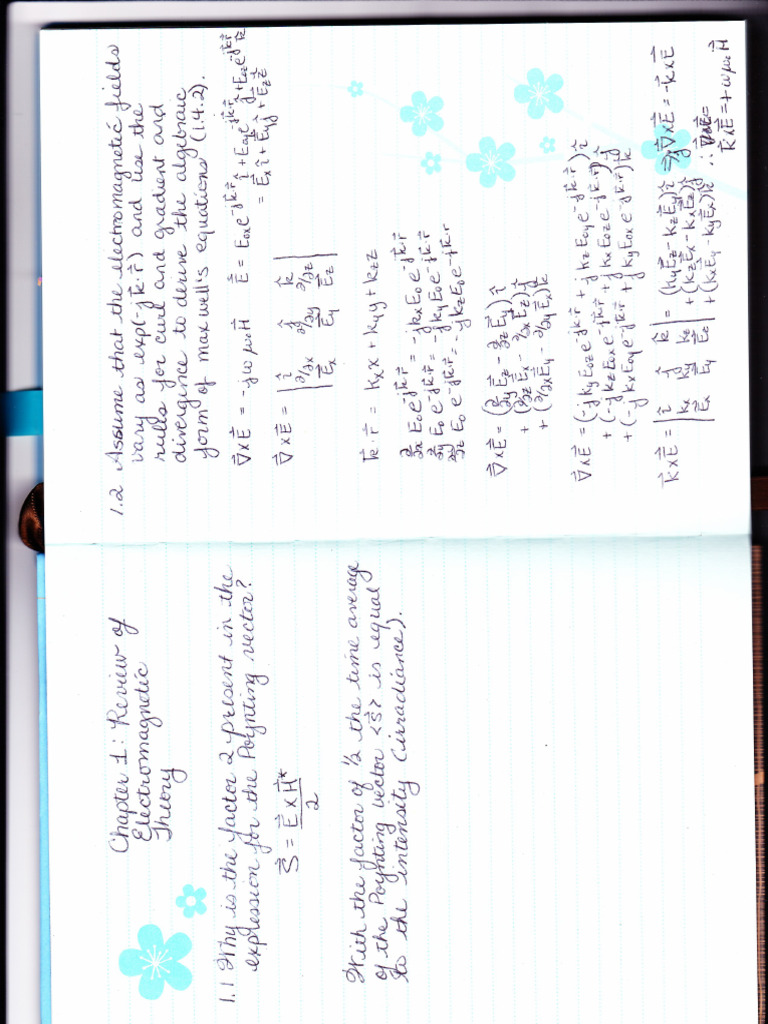 Chapter 1: Review of
Electromagnetic
Theory
1.1 Why is the factor 2 present in the
expression for the Poynting vector?
S⃗ = E⃗ x H⃗*
2
With the factor of 1/2 the time average
of the Poynting vector <S⃗> is equal
to the intensity (irradiance).
1.2 Assume that the electromagnetic fields
vary as exp(-jk⃗·r⃗) and use the
rules for curl and gradient and
divergence to derive the algebraic
form of maxwell's equations (1.4.2).
∇⃗xE⃗ = -jωμ₀H⃗ E⃗ = E₀ₓe^-jk⃗·r⃗ î + E₀ye^-jk⃗·r⃗ ĵ + E₀ze^-jk⃗·r⃗ k̂
= E⃗ₓî + E⃗yĵ + E⃗zk̂
∇⃗xE⃗ = | î ĵ k̂ |
| ∂/∂x ∂/∂y ∂/∂z |
| E⃗x E⃗y E⃗z |
k⃗·r⃗ = kₓx + kyy + kzz
∂/∂x E₀e^-jk⃗·r⃗ = -jkₓE₀e^-jk⃗·r⃗
∂/∂y E₀e^-jk⃗·r⃗ = -jkyE₀e^-jk⃗·r⃗
∂/∂z E₀e^-jk⃗·r⃗ = -jkzE₀e^-jk⃗·r⃗
∇⃗xE⃗ = (∂/∂y E⃗z - ∂/∂z E⃗y)î
+ (∂/∂z E⃗x - ∂/∂x E⃗z)ĵ
+ (∂/∂x E⃗y - ∂/∂y E⃗x)k̂
∇⃗xE⃗ = (-jkyE₀ze^-jk⃗·r⃗ + jkzE₀ye^-jk⃗·r⃗)î
+ (-jkzE₀ₓe^-jk⃗·r⃗ + jkₓE₀ze^-jk⃗·r⃗)ĵ
+ (-jkₓE₀ye^-jk⃗·r⃗ + jkyE₀ₓe^-jk⃗·r⃗)k̂
k⃗xE⃗ = | î ĵ k̂ | = (kyE⃗z - kzE⃗y)î ⇒ ∇⃗xE⃗ = -k⃗xE⃗
| kx ky kz | + (kzE⃗x - kxE⃗z)ĵ ∴
| E⃗x E⃗y E⃗z | + (kxE⃗y - kyE⃗x)k̂ k⃗xE⃗ = +ωμ₀H⃗